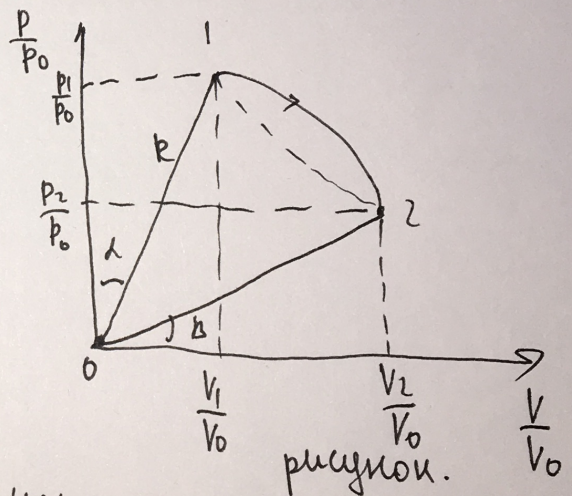 P/p0
1
p1/p0
R
p2/p0
2
α
β
0
V1/V0
V2/V0
V/V0
рисунок.